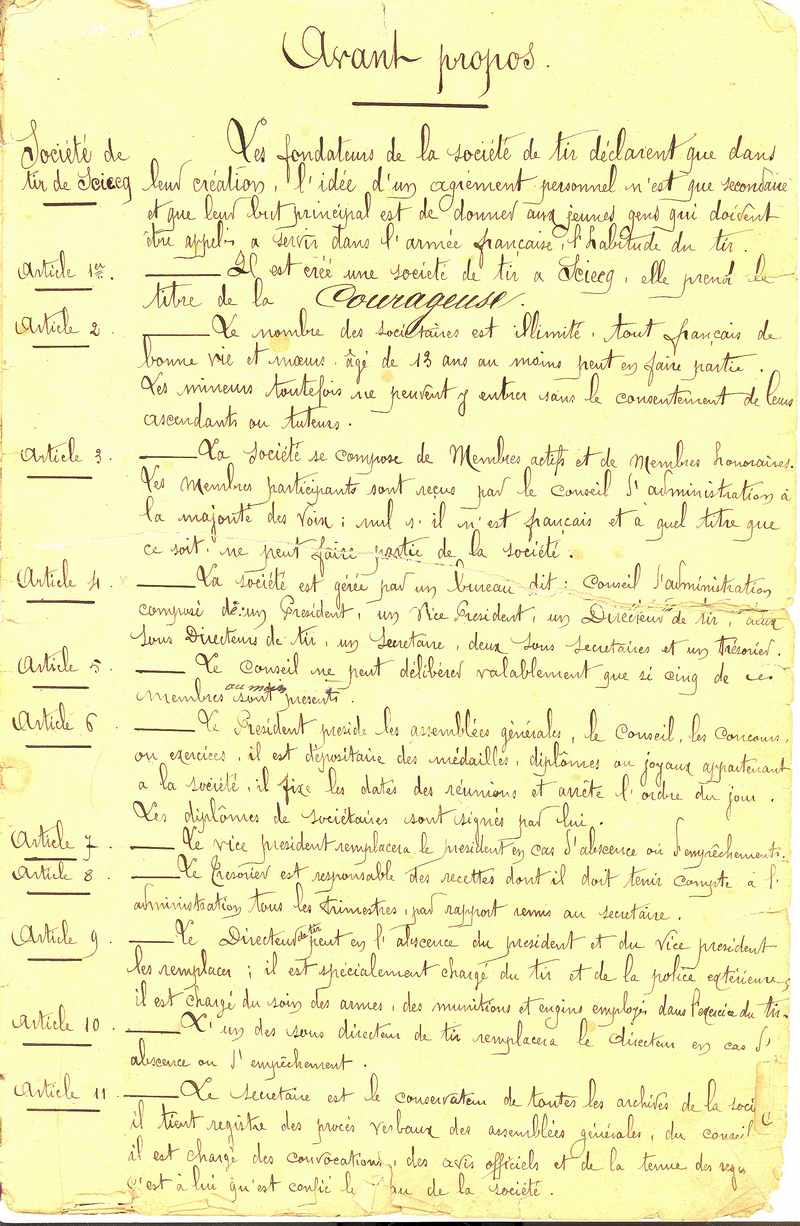 Avant propos.
Société de
tir de Sciecq
Les fondateurs de la société de tir déclarent que dans
leur création, l'idée d'un agrément personnel n'est que secondaire
et que leur but principal est de donner aux jeunes gens qui doivent
être appelés a servir dans l'armée française, l'habitude du tir.
Article 1er. Il est créé une société de tir a Sciecq, elle prend le
titre de la Courageuse.
Article 2. Le nombre des sociétaires est illimité, tout français de
bonne vie et mœurs âgé de 13 ans au moins peut en faire partie.
Les mineurs toutefois ne peuvent y entrer sans le consentement de leurs
ascendants ou tuteurs.
Article 3. La Société se compose de Membres actifs et de Membres honoraires.
Les Membres participants sont reçus par le Conseil d'administration à
la majorité des voix ; nul s'il n'est français et à quel titre que
ce soit ne peut faire partie de la société.
Article 4. La société est gérée par un bureau dit : Conseil d'administration
composé de : un President, un Vice President, un Directeur de tir, deux
sous Directeurs de tir, un Secretaire, deux sous secretaires et un trésorier.
Article 5. Le Conseil ne peut délibérer valablement que si cinq de ses
membres au moins sont presents.
Article 6. Le President preside les assemblées générales, le Conseil, les concours,
ou exercices, il est dépositaire des médailles, diplômes ou joyaux appartenant
a la société, il fixe les dates des réunions et arrête l'ordre du jour.
Les diplômes de sociétaires sont signés par lui.
Article 7. Le vice president remplacera le president en cas d'abscence ou d'emprêchements.
Article 8. Le Tresorier est responsable des recettes dont il doit tenir compte à l'
administration tous les trimestres, par rapport remis au secretaire.
Article 9. Le Directeur de tir peut en l'abscence du president et du vice president
les remplacer ; il est spécialement chargé du tir et de la police extérieure,
il est chargé du soin des armes, des munitions et engins employés dans l'exercice du tir.
Article 10. L'un des sous directeur de tir remplacera le directeur en cas d'
abscence ou d'emprêchement.
Article 11. Le secretaire est le conservateur de toutes les archives de la soci
il tient registre des procés verbaux des assemblées générales, du conseil
il est chargé des convocations, des avis officiels et de la tenue des
c'est à lui qu'est confié le de la société.